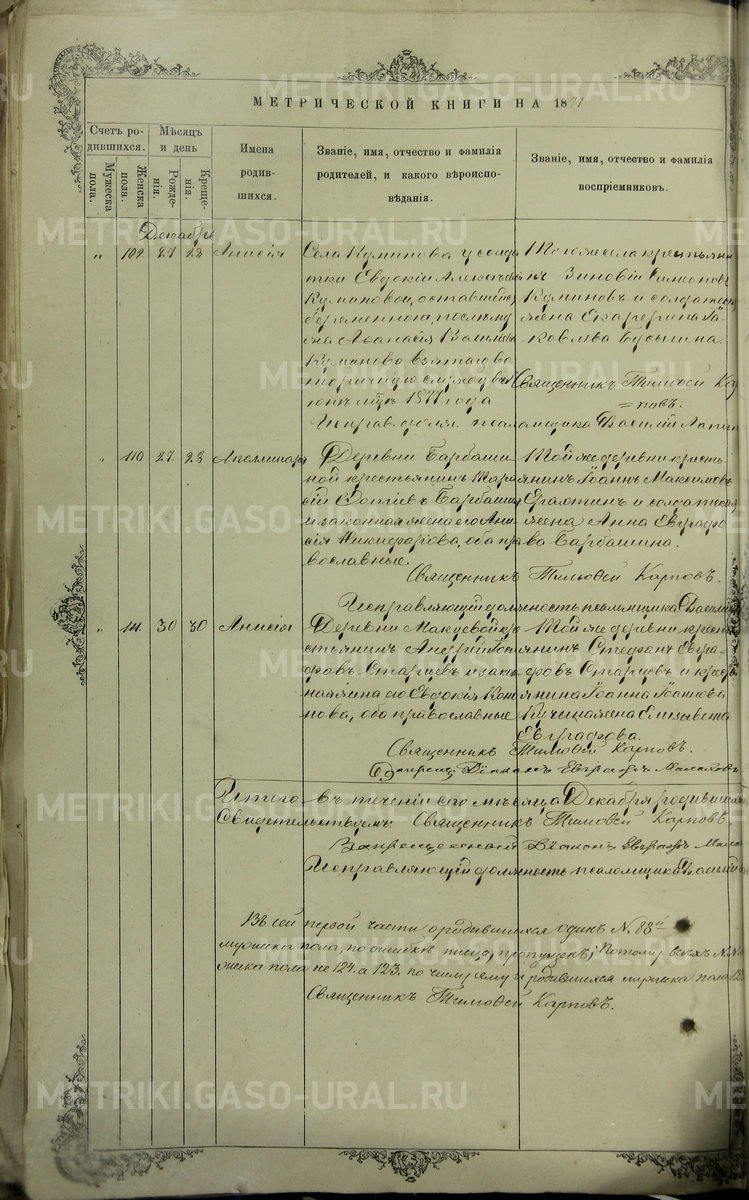 МЕТРИЧЕСКОЙ КНИГИ НА 1877
Счетъ родившихся.
Мужеска пола.
Женска пола.
Мѣсяцъ и день
Рожденія.
Крещенія.
Имена
родив-
шихся.
Званіе, имя, отчество и фамилія
родителей, и какого вѣроиспо-
вѣданія.
Званіе, имя, отчество и фамилія
воспріемниковъ.
Декабрь
" 109 27 28 Анисія
Села Куминова у солдат
тки Евдокіи Алексѣевой
Куминовой, оставшейся
беременною, послѣ мужа
Аѳанасія
Куминова взятаго во
вторичную службу въ
1877 года
Тогоже села крестьянинъ
Зиновій Симеоновъ
Куминовъ и солдатская
жена Екатерина Яковлева
Священникъ Тимоѳей Карповъ.
псаломщика Василій
" 110 27 28 Аполлинарія
Деревни Барбашиной
крестьянинъ Тарасій
Фотіевъ Барбашинъ
и законная жена его Анисія
Никифорова, оба православные.
Той же деревни крестьянинъ
Іоаннъ Максимовъ
и солдатская
жена Анна Евграфова
Барбашина.
Священникъ Тимоѳей Карповъ.
Исправляющій должность псаломщика Василій
" 111 30 30 Анисія
Деревни Макуевой крестьянинъ
Андрей
Старцевъ и законная
жена его Евдокія
оба православные
Той же деревни крестьянинъ
Стефанъ Евграфовъ
Старцевъ и крестьянина
Іоанна Іоаннова
жена Елизавета
Евграфова.
Священникъ Тимоѳей Карповъ.
Діаконъ Евграфъ
Итого въ теченіи сего мѣсяца Декабря родившихся
Свидетельствуемъ Священникъ Тимоѳей Карповъ.
Запрещенный Діаконъ Евграфъ
Исправляющій должность псаломщика Василій
Въ сей первой части о родившихся одинъ № 88й
мужска пола, по ошибкѣ писца, пропущенъ; потому всехъ №№
жска пола не 124, а 123. по чему сему и родившихся мужска пола 123
Священникъ Тимоѳей Карповъ.
METRIKI.GASO-URAL.RU